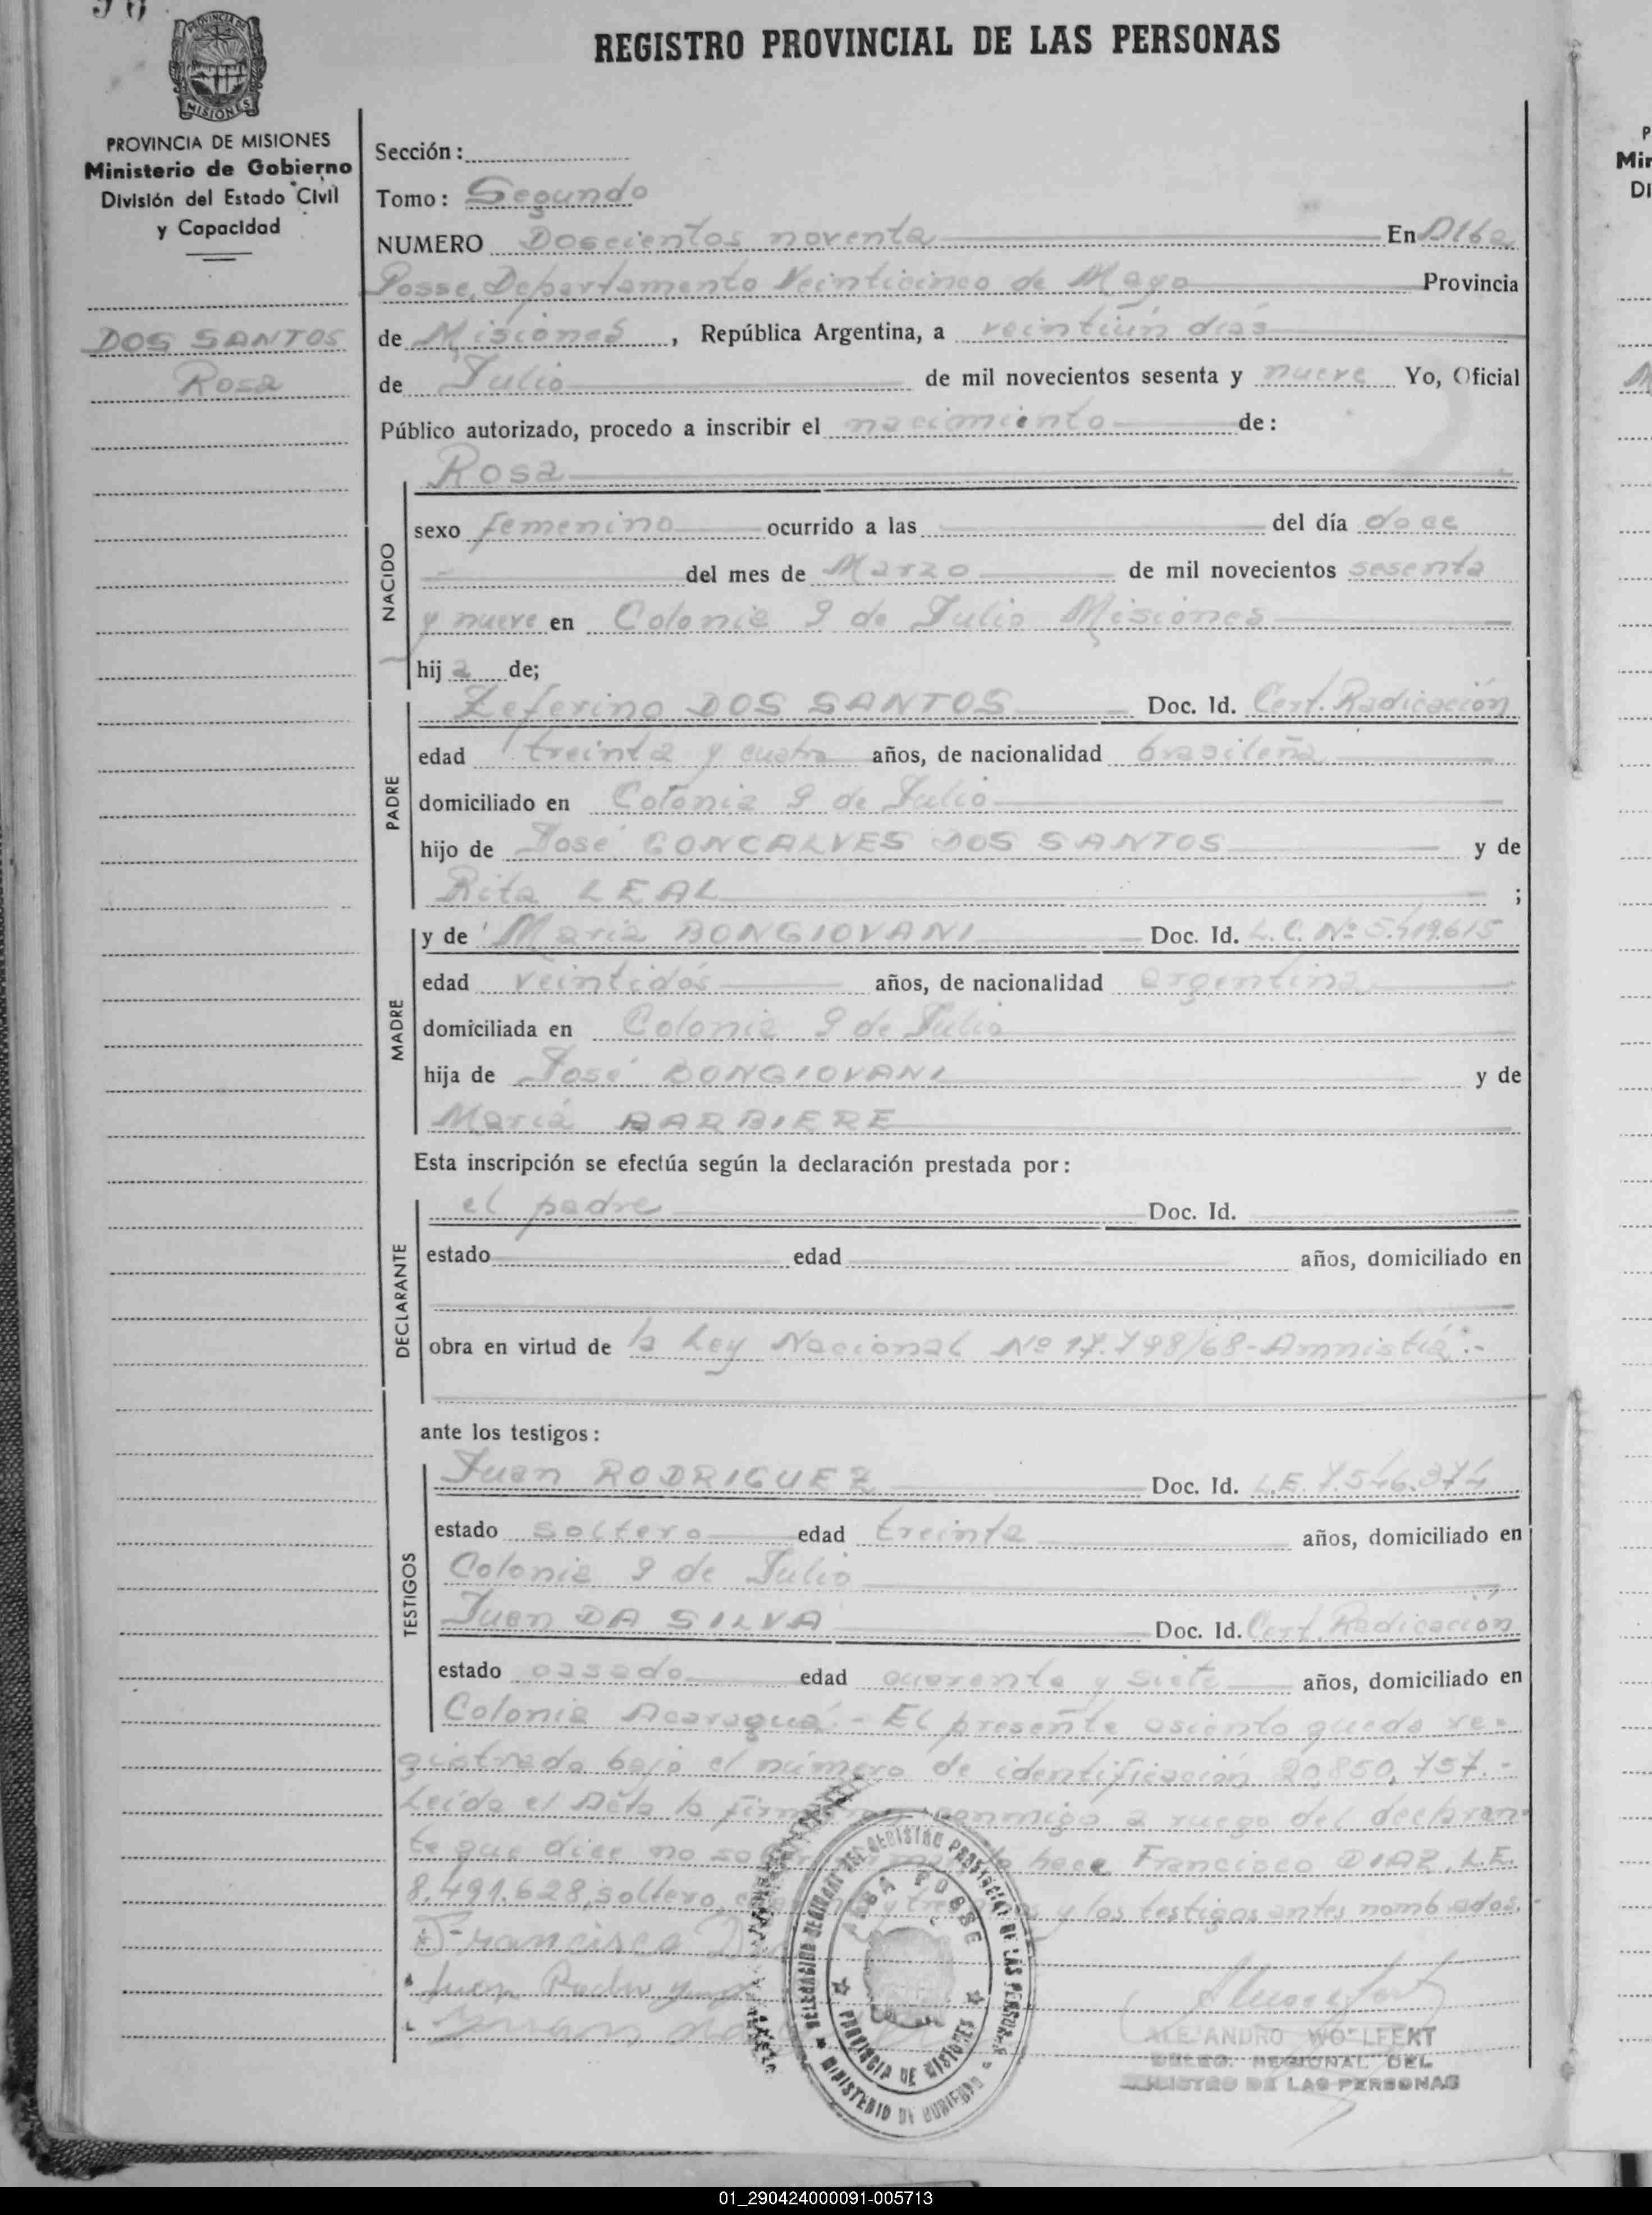 REGISTRO PROVINCIAL DE LAS PERSONAS
PROVINCIA DE MISIONES
Ministerio de Gobierno
División del Estado Civil
y Capacidad
DOS SANTOS
Rosa
Sección:
Tomo: Segundo
NUMERO Doscientos noventa En Alba
Posse, Departamento Veinticinco de Mayo Provincia
de Misiones, República Argentina, a veintiún días
de Julio de mil novecientos sesenta y nueve Yo, Oficial
Público autorizado, procedo a inscribir el nacimiento de:
Rosa
NACIDO
sexo femenino ocurrido a las del día doce
del mes de Marzo de mil novecientos sesenta
y nueve en Colonia 9 de Julio Misiones
hij a de;
PADRE
Zeferino DOS SANTOS Doc. Id. Cert. Radicación
edad treinta y cuatro años, de nacionalidad brasileña
domiciliado en Colonia 9 de Julio
hijo de José GONCALVES DOS SANTOS y de
Rita LEAL ;
MADRE
y de María BONGIOVANI Doc. Id. L. C. Nº 5.419.615
edad veintidós años, de nacionalidad argentina
domiciliada en Colonia 9 de Julio
hija de José BONGIOVANI y de
María BARBIERE
Esta inscripción se efectúa según la declaración prestada por:
DECLARANTE
el padre Doc. Id.
estado edad años, domiciliado en
obra en virtud de la Ley Nacional Nº 17.798/68-Amnistía.-
ante los testigos:
TESTIGOS
Juan RODRIGUEZ Doc. Id. L.E. 7.546.374
estado soltero edad treinta años, domiciliado en
Colonia 9 de Julio
Juan DA SILVA Doc. Id. Cert. Radicación
estado casado edad cuarenta y siete años, domiciliado en
Colonia Acaraguá.- El presente asiento queda re-
gistrado bajo el número de identificación 20.850.757.-
Leída el Acta la conmigo a ruego del declaran-
te que dice no hace Francisco DIAZ, L.E.
8.491.628, soltero, y los testigos antes nombrados.
Francisco
Juan
DELEGACION REGIONAL DEL REGISTRO PROVINCIAL DE LAS PERSONAS
ALBA POSSE
PROVINCIA DE MISIONES
MINISTERIO DE GOBIERNO
ALEJANDRO WOLFERT
DELEG. REGIONAL DEL
REGISTRO DE LAS PERSONAS
01_290424000091-005713